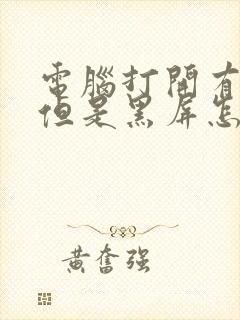 電腦打開有
但是黑屏怎
黃奮強